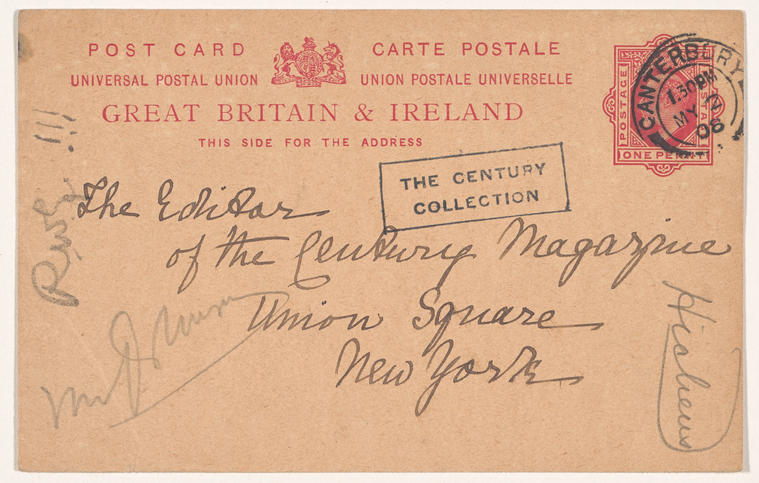 POST CARD CARTE POSTALE
UNIVERSAL POSTAL UNION UNION POSTALE UNIVERSELLE
GREAT BRITAIN & IRELAND
THIS SIDE FOR THE ADDRESS
POSTAGE
ONE PENNY
CANTERBURY
1.30PM
MY
06
THE CENTURY
COLLECTION
The Editor
of the Century Magazine
Union Square
New York
Hichens